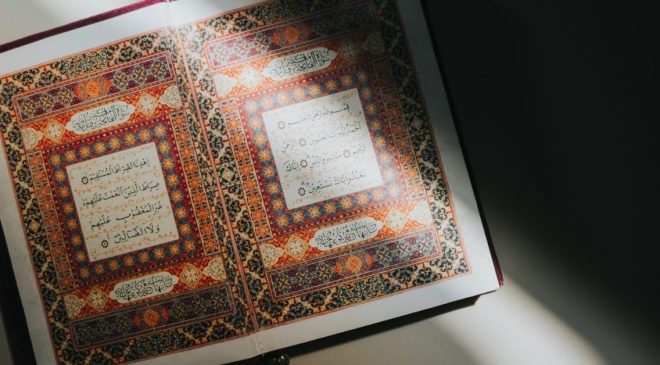 بِسْمِ اللَّهِ الرَّحْمَٰنِ الرَّحِيمِ ۝
الْحَمْدُ لِلَّهِ رَبِّ الْعَالَمِينَ ۝ الرَّحْمَٰنِ
الرَّحِيمِ ۝ مَالِكِ يَوْمِ الدِّينِ ۝ إِيَّاكَ
نَعْبُدُ وَإِيَّاكَ نَسْتَعِينُ ۝
اِهْدِنَا الصِّرَاطَ الْمُسْتَقِيمَ ۝
صِرَاطَ الَّذِينَ أَنْعَمْتَ عَلَيْهِمْ
غَيْرِ الْمَغْضُوبِ عَلَيْهِمْ
وَلَا الضَّالِّينَ ۝